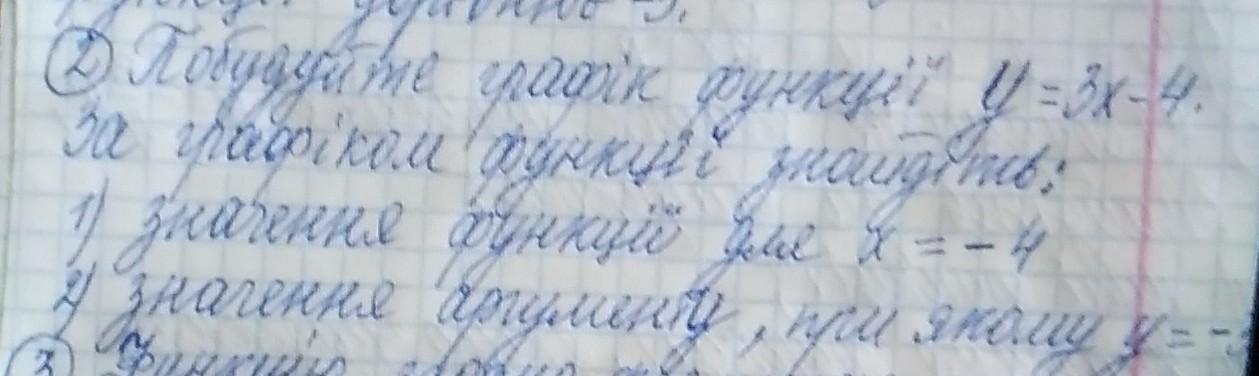 ② Побудуйте графік функції y = 3x - 4.
За графіком функції знайдіть:
1) значення функції для x = - 4
2) значення аргументу, при якому y = -
③ Функцію